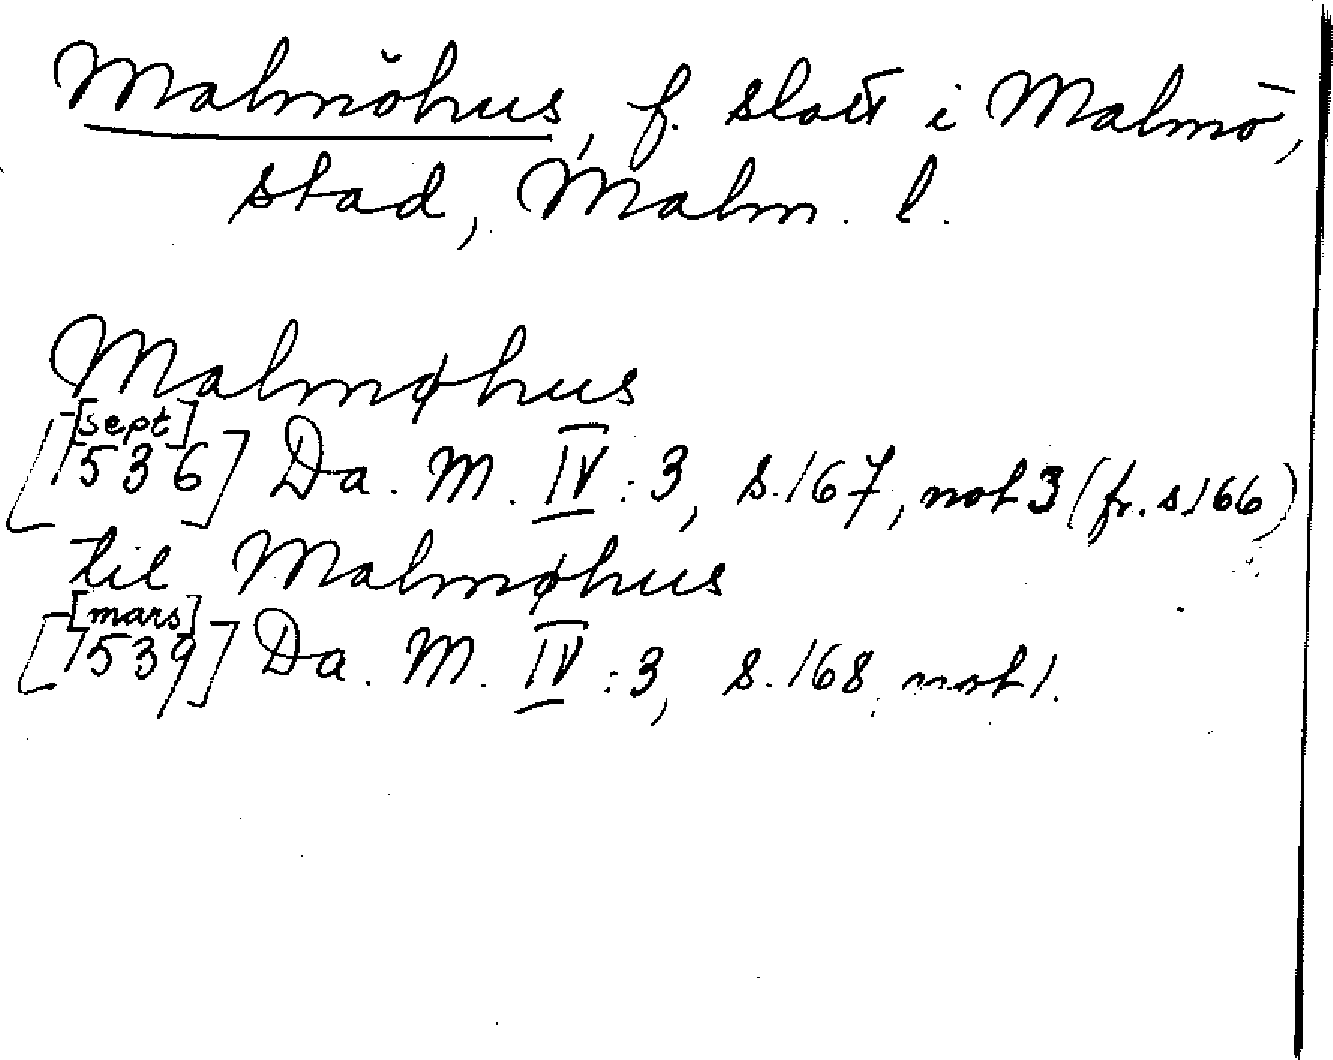 Malmöhus, f. slott i Malmö,
stad, Malm. l.
Malmøhus
[sept]
[1536] Da. M. IV:3, s. 167, not 3 (fr. s 166)
til Malmøhus
[mars]
[1539] Da. M. IV:3, s. 168 not 1.